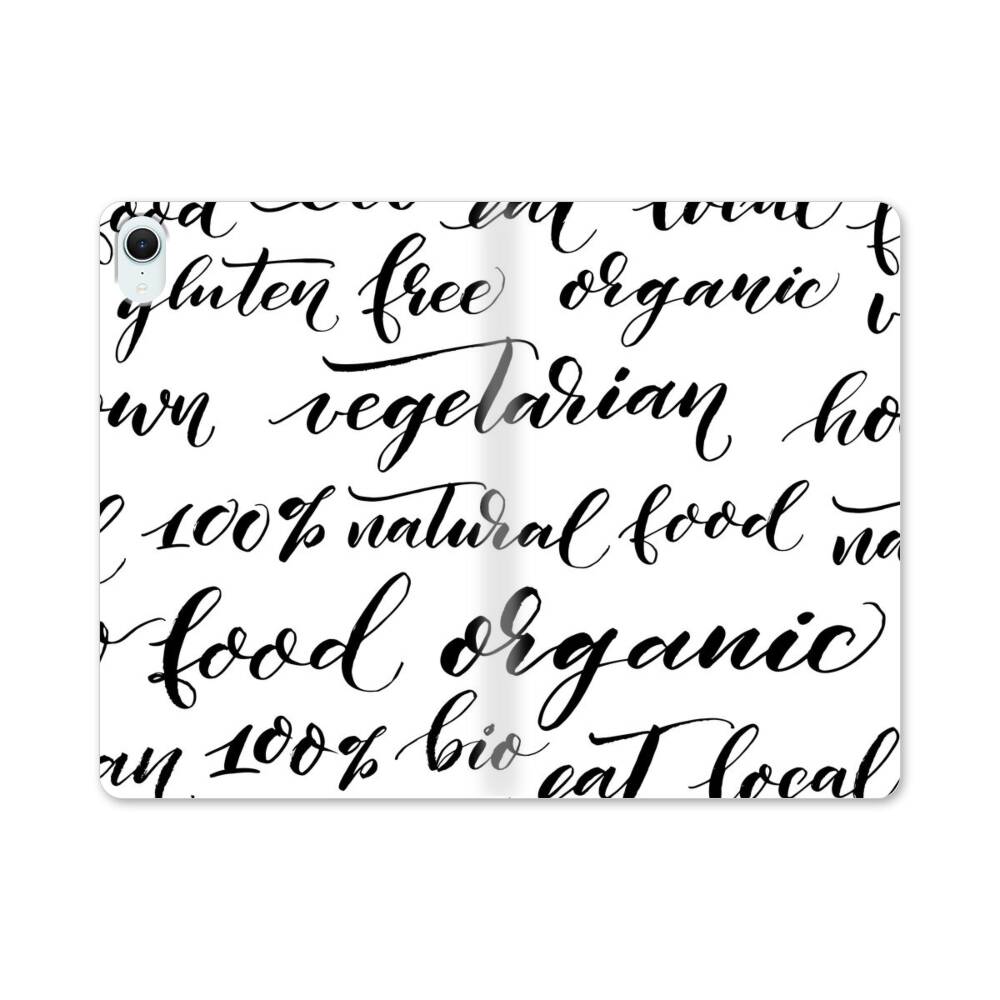 ood eat local f
gluten free organic v
own vegetarian ho
100% natural food na
food organic
an 100% bio eat local